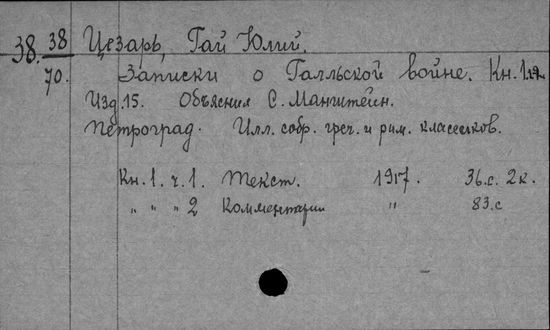 38. 38 Цезарь, Гай Юлий.
70. Записки о Галльской войне. Кн. 1ая
Изд. 15. Объяснил С. Манштейн.
Петроград. Илл. собр. греч. и рим. классиков.
Кн. 1. ч. 1. Текст. 1917. 36. с. 2 к.
" " " 2 Комментарии " 83. с